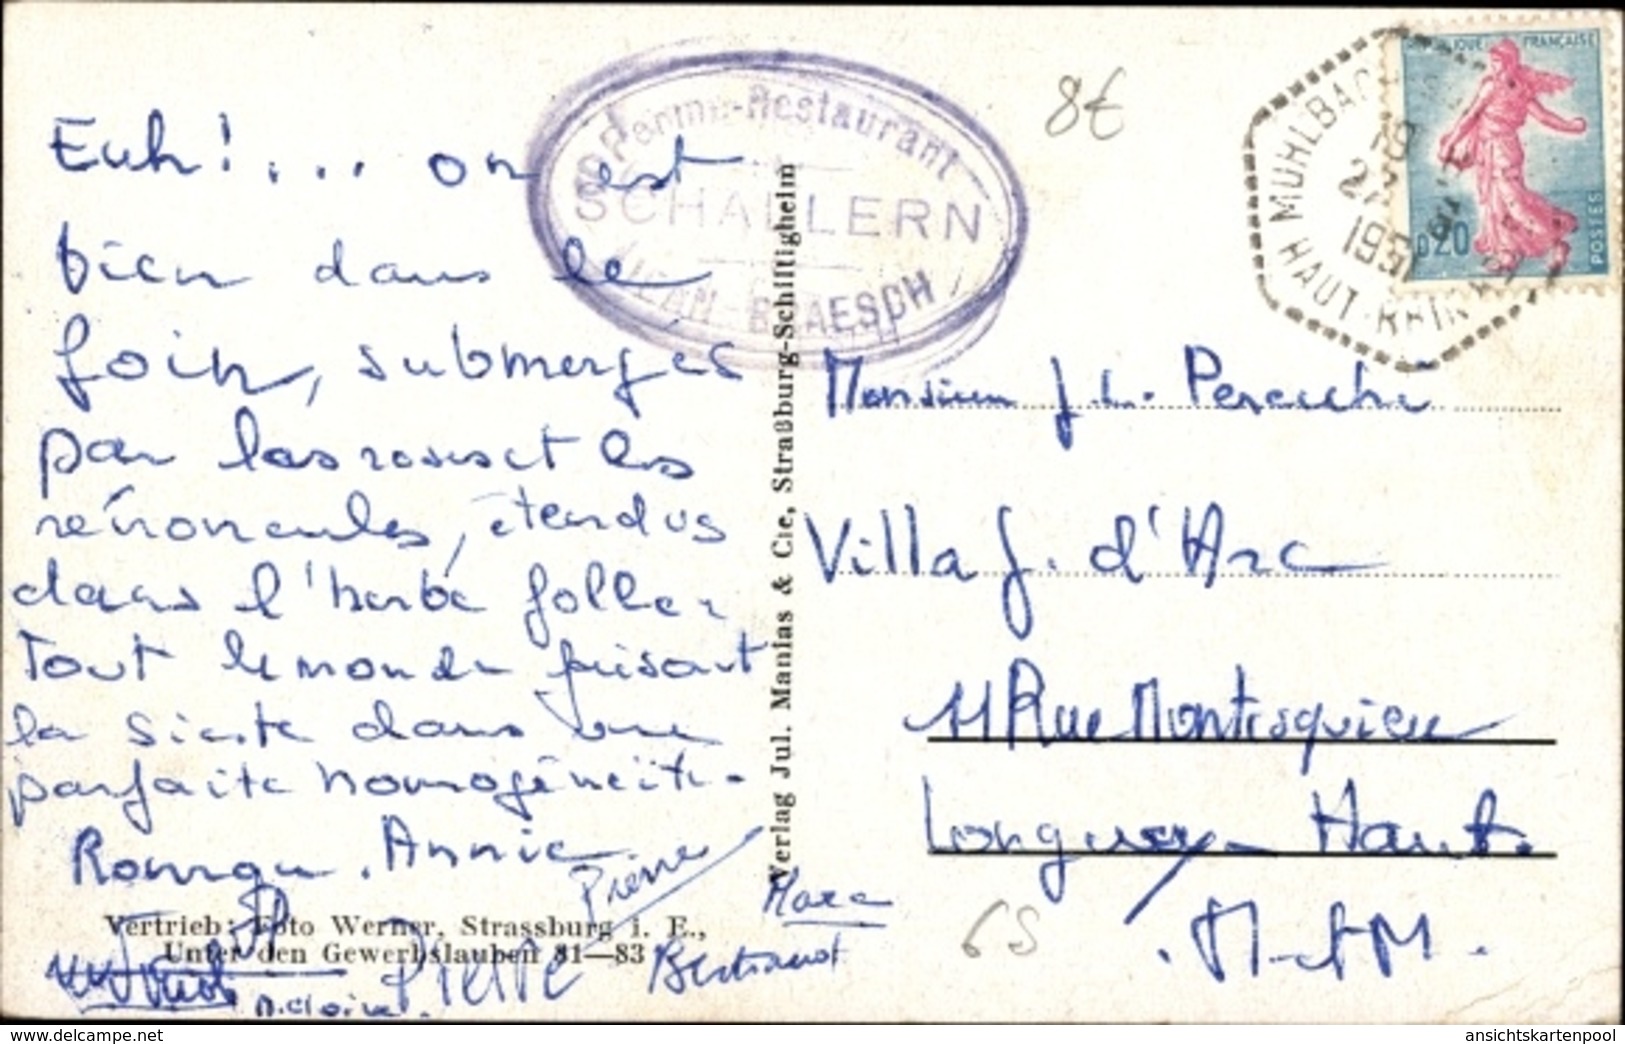 Euh!... on est
bien dans le
foin, submergés
par les roses et les
rénoncules, étendus
dans l'herbe folle.
Tout le monde faisait
la sieste dans une
parfaite homogénéité.
Annie
Pierre
Marc
Pierre
Bertrand
M. Claire.
Vertrieb: Foto Werner, Strassburg i. E.,
Unter den Gewerbslauben 81—83
Verlag Jul. Manias & Cie, Straßburg-Schiltigheim
Ferme-Restaurant
SCHALLERN
JEAN BRAESCH
8€
MUHLBACH
HAUT-RHIN
19
27
FRANÇAISE
0,20
POSTES
Monsieur J.L. Pereuche
Villa J. d'Arc
11 Rue Montesquieu
Longwy-Haut.
M-et-M.
65
delcampe.net
ansichtskartenpool